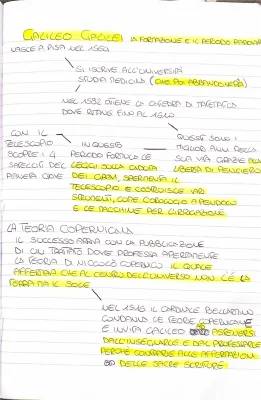 GALILEO GALILEI LA FORMAZIONE E IL PERIODO PADOVANO
NASCE A PISA NEL 1564
SI ISCRIVE ALL'UNIVERSITÀ
STUDIA MEDICINA (CHE POI ABBANDONERÀ)
NEL 1592 OTTIENE LA CATEDRA DI MATEMATICA
DOVE RIMANE FINO AL 1610
QUESTI SONO I
MIGLIORI ANNI DELLA
SUA VITA GRAZIE ALLA
LIBERTÀ DI PENSIERO
IN QUESTO
PERIODO FORMULA LE
LEGGI SULLA CADUTA
DEI GRAVI, SPERIMENTA IL
TELESCOPIO E COSTRUISCE VARI
STRUMENTI, COME L'OROLOGIO A PENDOLO
E LE MACCHINE PER L'IRRIGAZIONE
CON IL
TELESCOPIO
SCOPRE I 4
SATELLITI DEL
PIANETA GIOVE
LA TEORIA COPERNICANA
IL SUCCESSO ARRIVA CON LA PUBBLICAZIONE
DI UN TRATTATO DOVE PROFESSA APERTAMENTE
LA TEORIA DI NICCOLÒ COPERNICO IL QUALE
AFFERMA CHE AL CENTRO DELL'UNIVERSO NON C'È LA
TERRA MA IL SOLE
NEL 1616 IL CARDINALE BELLARMINO
CONDANNA LE TEORIE COPERNICANE
E INVITA GALILEO AD ASTENERSI
DALL'INSEGNARLE E DAL PROFESSARLE
PERCHÉ CONTRARIE ALLE AFFERMAZIONI
DELLE SACRE SCRITTURE